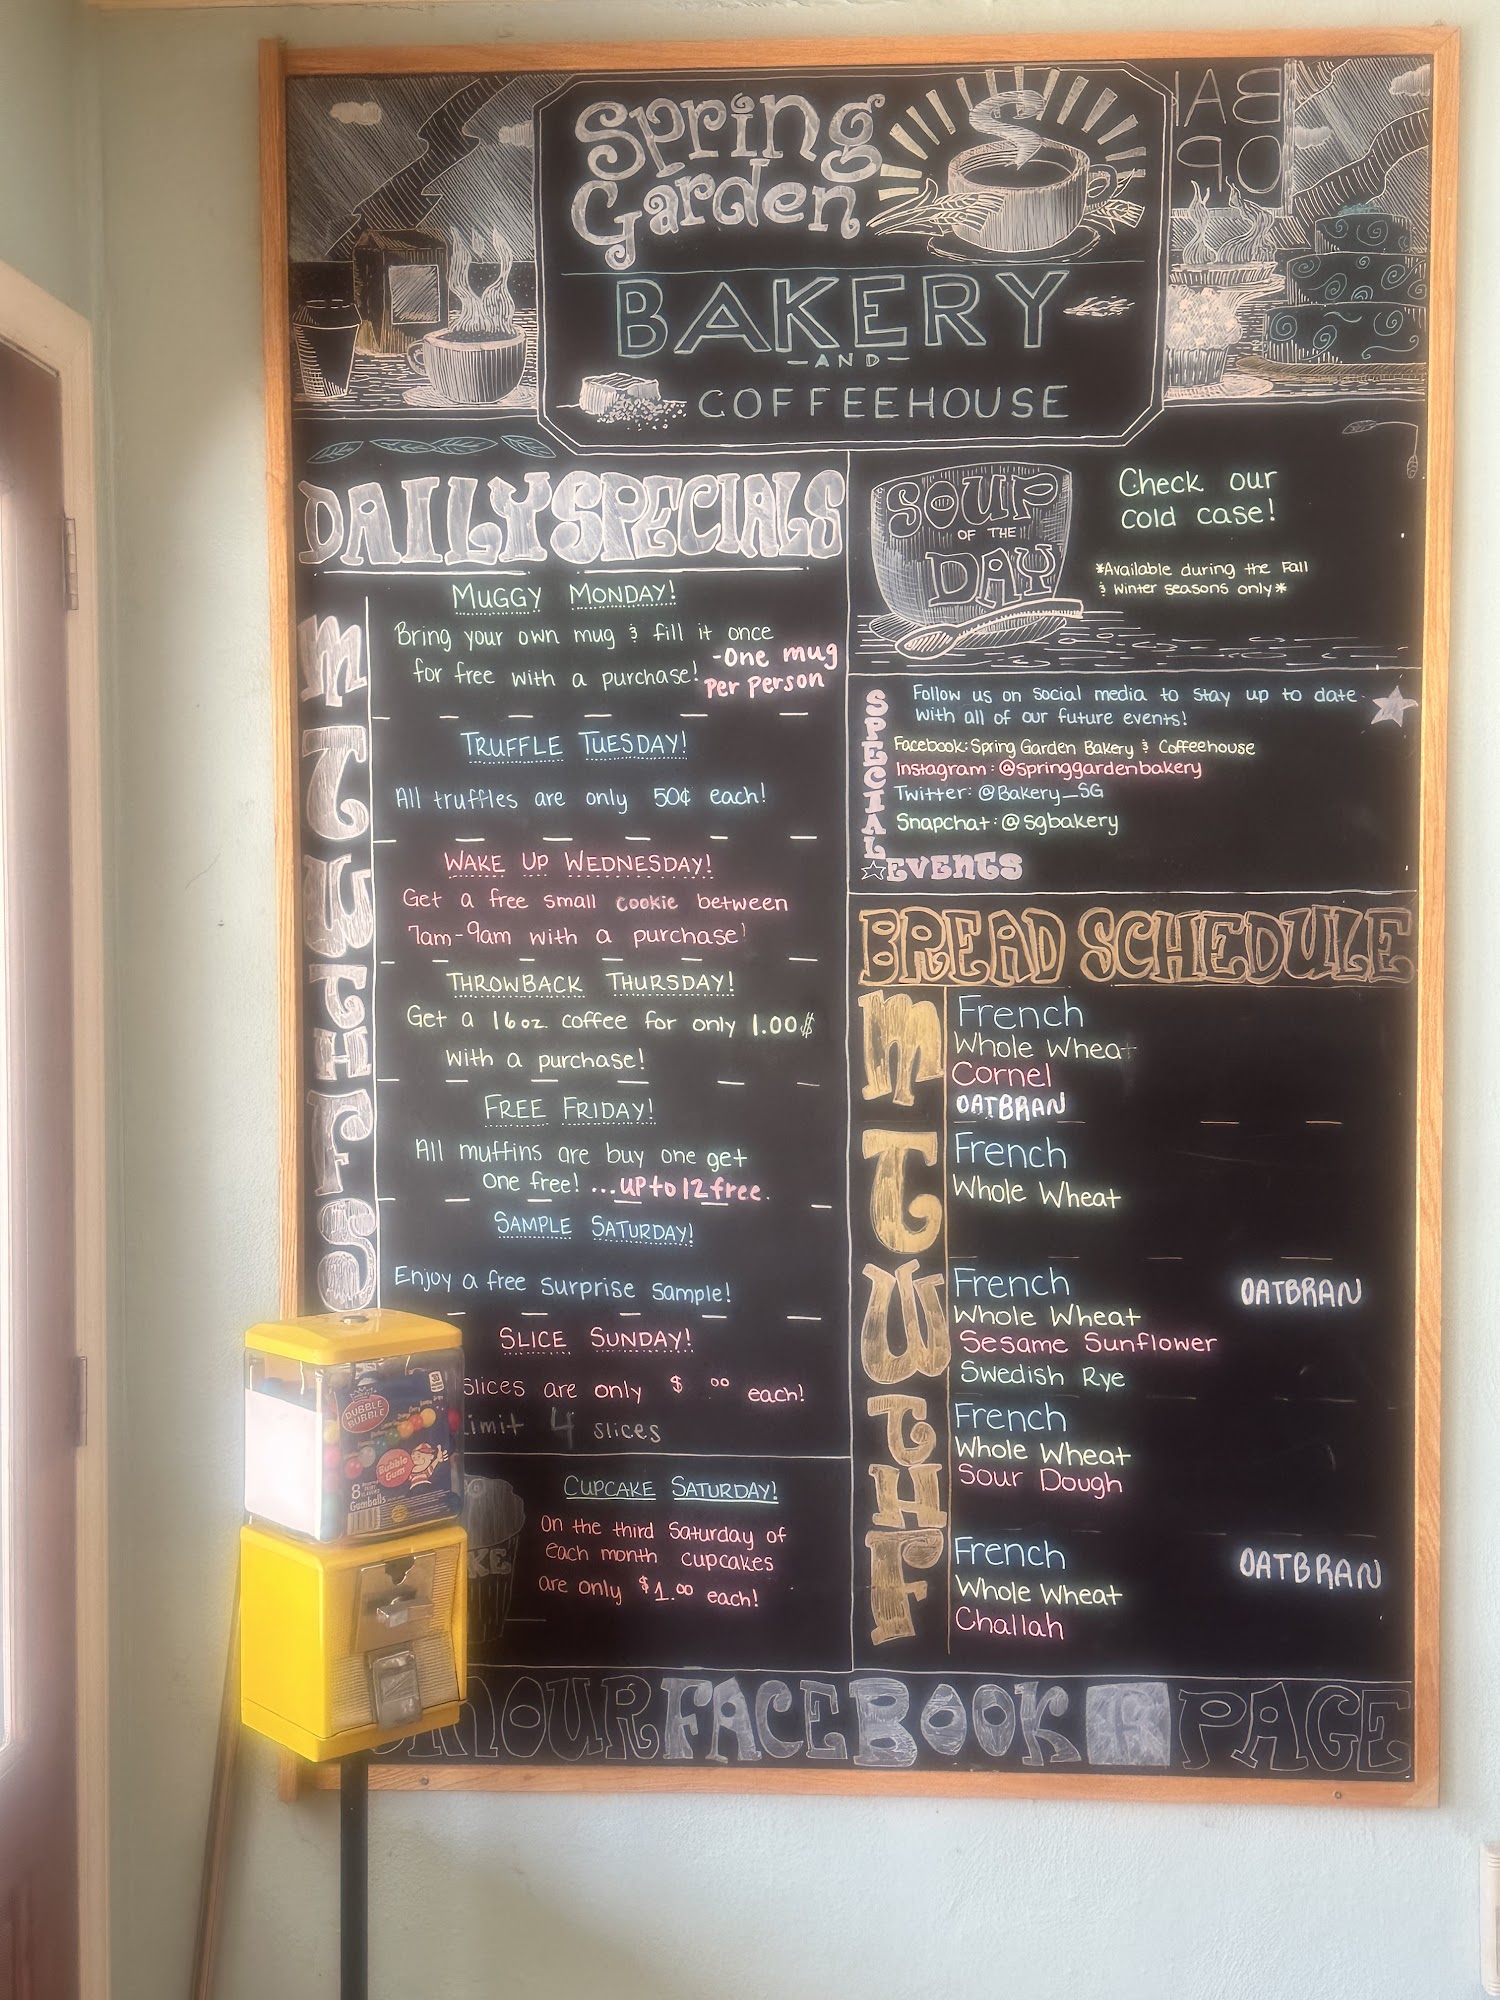 Spring
Garden
BAKERY
AND
COFFEEHOUSE
DAILY SPECIALS
M
T
W
TH
F
S
MUGGY MONDAY!
Bring your own mug & fill it once
for free with a purchase!
-One mug
per person
TRUFFLE TUESDAY!
All truffles are only 50¢ each!
WAKE UP WEDNESDAY!
Get a free small cookie between
7am-9am with a purchase!
THROWBACK THURSDAY!
Get a 16oz coffee for only 1.00$
with a purchase!
FREE FRIDAY!
All muffins are buy one get
one free! ...up to 12 free.
SAMPLE SATURDAY!
Enjoy a free surprise sample!
SLICE SUNDAY!
slices are only $ .00 each!
Limit 4 slices
CUPCAKE SATURDAY!
On the third Saturday of
each month cupcakes
are only $1.00 each!
SOUP
OF THE
DAY
Check our
cold case!
*Available during the Fall
& winter seasons only*
SPECIAL
EVENTS
Follow us on social media to stay up to date
with all of our future events!
Facebook: Spring Garden Bakery & Coffeehouse
Instagram: @springgardenbakery
Twitter: @Bakery_SG
Snapchat: @sgbakery
BREAD SCHEDULE
M
French
Whole Wheat
Cornel
OATBRAN
T
French
Whole Wheat
W
French
OATBRAN
Whole Wheat
Sesame Sunflower
Swedish Rye
TH
French
Whole Wheat
Sour Dough
F
French
OATBRAN
Whole Wheat
Challah
OUR FACEBOOK PAGE
DUBBLE
BUBBLE
Bubble
Gum
8
Gumballs